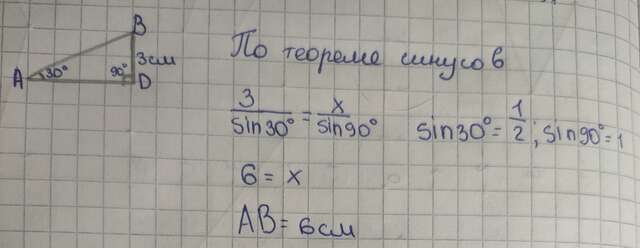 B
A 30° 90° 3см
D
По теореме синусов
3/sin30° = x/sin90° sin30° = 1/2; sin90° = 1
6 = x
AB = 6см